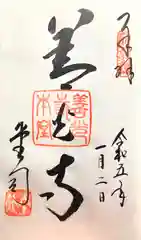 奉拝
令和五年
一月二日
善光寺
善光寺本堂
堂司